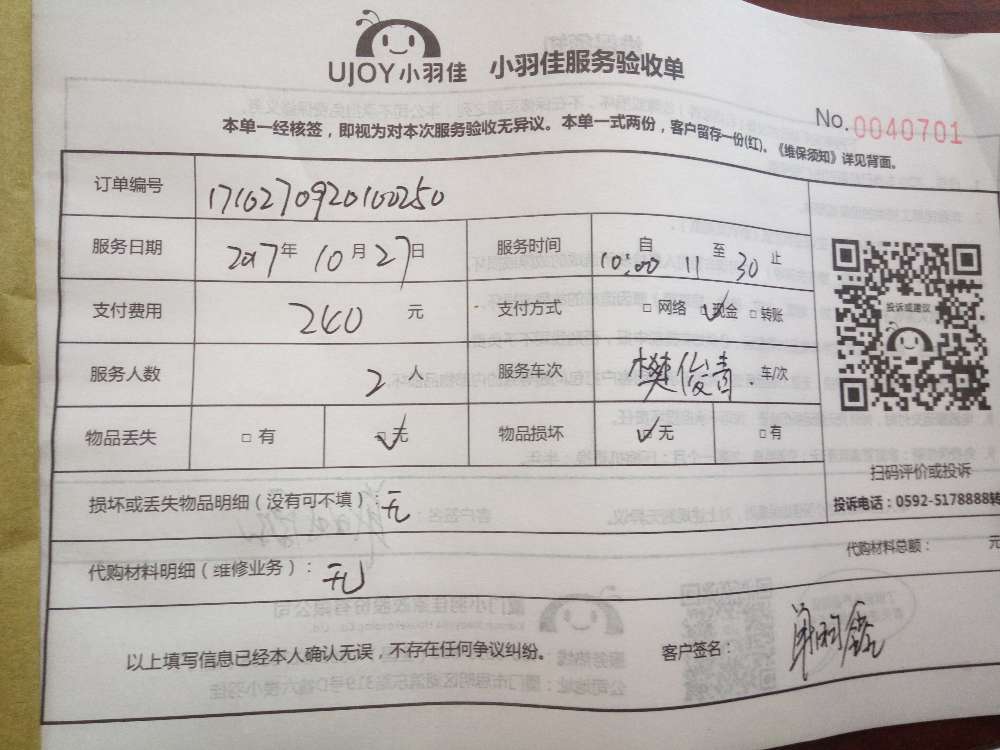 UJOY小羽佳 小羽佳服务验收单
No.0040701
本单一经核签，即视为对本次服务验收无异议。本单一式两份，客户留存一份(红)。《维保须知》详见背面。
订单编号 1710270920100250
服务日期 2017年10月27日 服务时间 自10:00至11 30止
支付费用 240元 支付方式 □网络 ☑现金 □转账
服务人数 2人 服务车次 樊俊青 车/次
物品丢失 □有 ☑无 物品损坏 ☑无 □有
投诉或建议
扫码评价或投诉
投诉电话：0592-5178888转
损坏或丢失物品明细（没有可不填）：无
代购材料明细（维修业务）：无 代购材料总额： 元
以上填写信息已经本人确认无误，不存在任何争议纠纷。 客户签名：